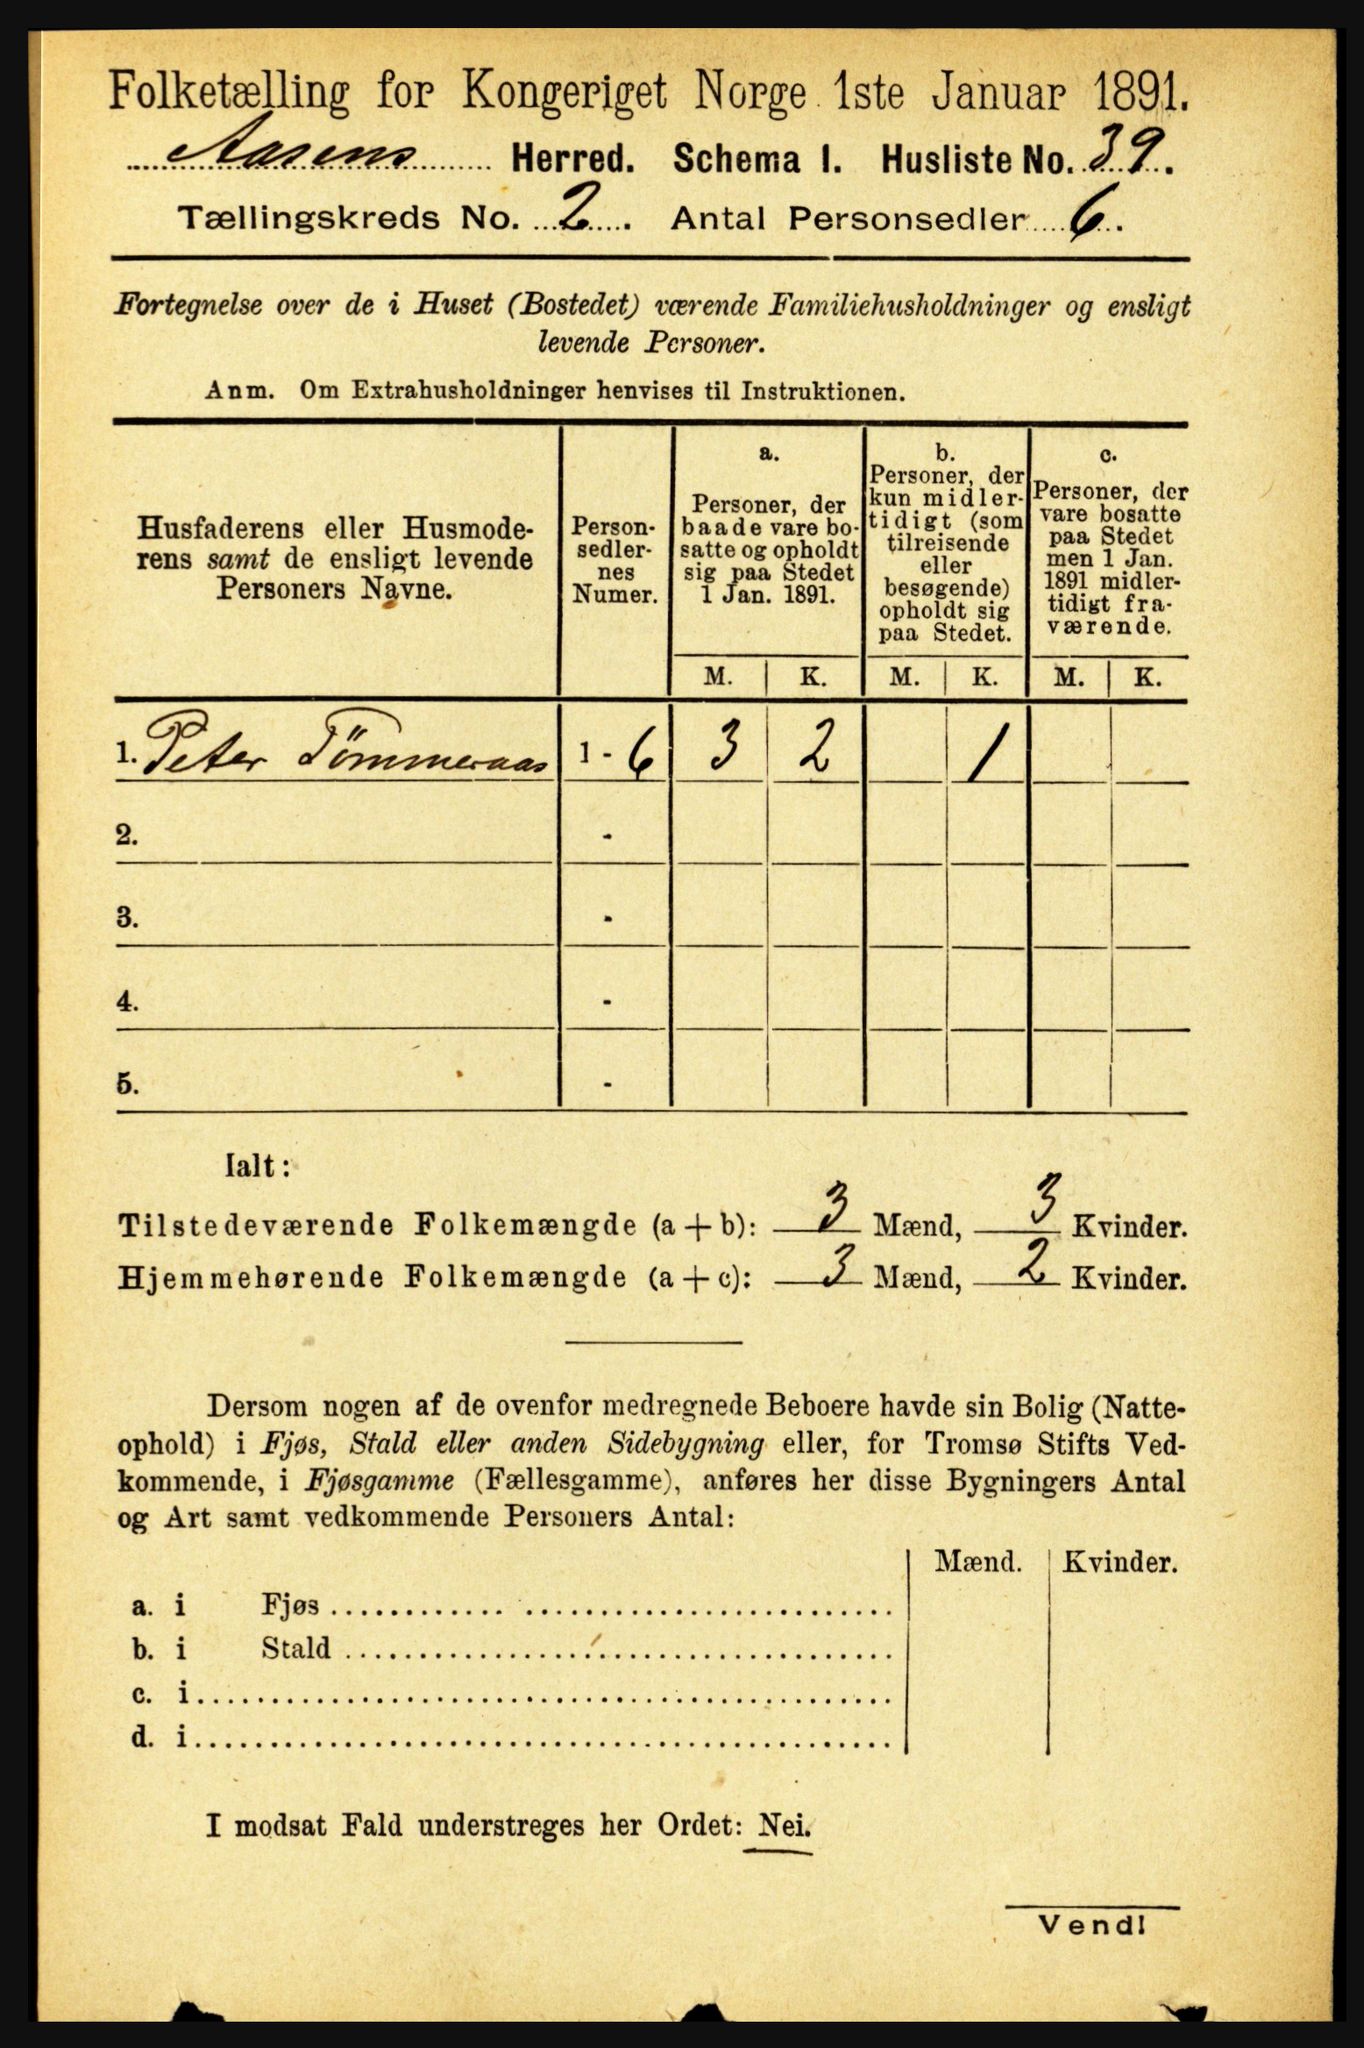 Folketælling for Kongeriget Norge 1ste Januar 1891.
Aasens Herred. Schema I. Husliste No. 39.
Tællingskreds No. 2. Antal Personsedler 6.
Fortegnelse over de i Huset (Bostedet) værende Familiehusholdninger og ensligt
levende Personer.
Anm. Om Extrahusholdninger henvises til Instruktionen.
Husfaderens eller Husmode-
rens samt de ensligt levende
Personers Navne.
Person-
sedler-
nes
Numer.
a.
Personer, der
baade vare bo-
satte og opholdt
sig paa Stedet
1 Jan. 1891.
b.
Personer, der
kun midler-
tidigt (som
tilreisende
eller
besøgende)
opholdt sig
paa Stedet.
c.
Personer, der
vare bosatte
paa Stedet
men 1 Jan.
1891 midler-
tidigt fra-
værende.
M. K. M. K. M. K.
1. Peter Tömmeraas 1 - 6 3 2 1
2. -
3. -
4. -
5. -
Ialt:
Tilstedeværende Folkemængde (a + b): 3 Mænd, 3 Kvinder.
Hjemmehørende Folkemængde (a + c): 3 Mænd, 2 Kvinder.
Dersom nogen af de ovenfor medregnede Beboere havde sin Bolig (Natte-
ophold) i Fjøs, Stald eller anden Sidebygning eller, for Tromsø Stifts Ved-
kommende, i Fjøsgamme (Fællesgamme), anføres her disse Bygningers Antal
og Art samt vedkommende Personers Antal:
Mænd. Kvinder.
a. i Fjøs
b. i Stald
c. i
d. i
I modsat Fald understreges her Ordet: Nei.
Vend!